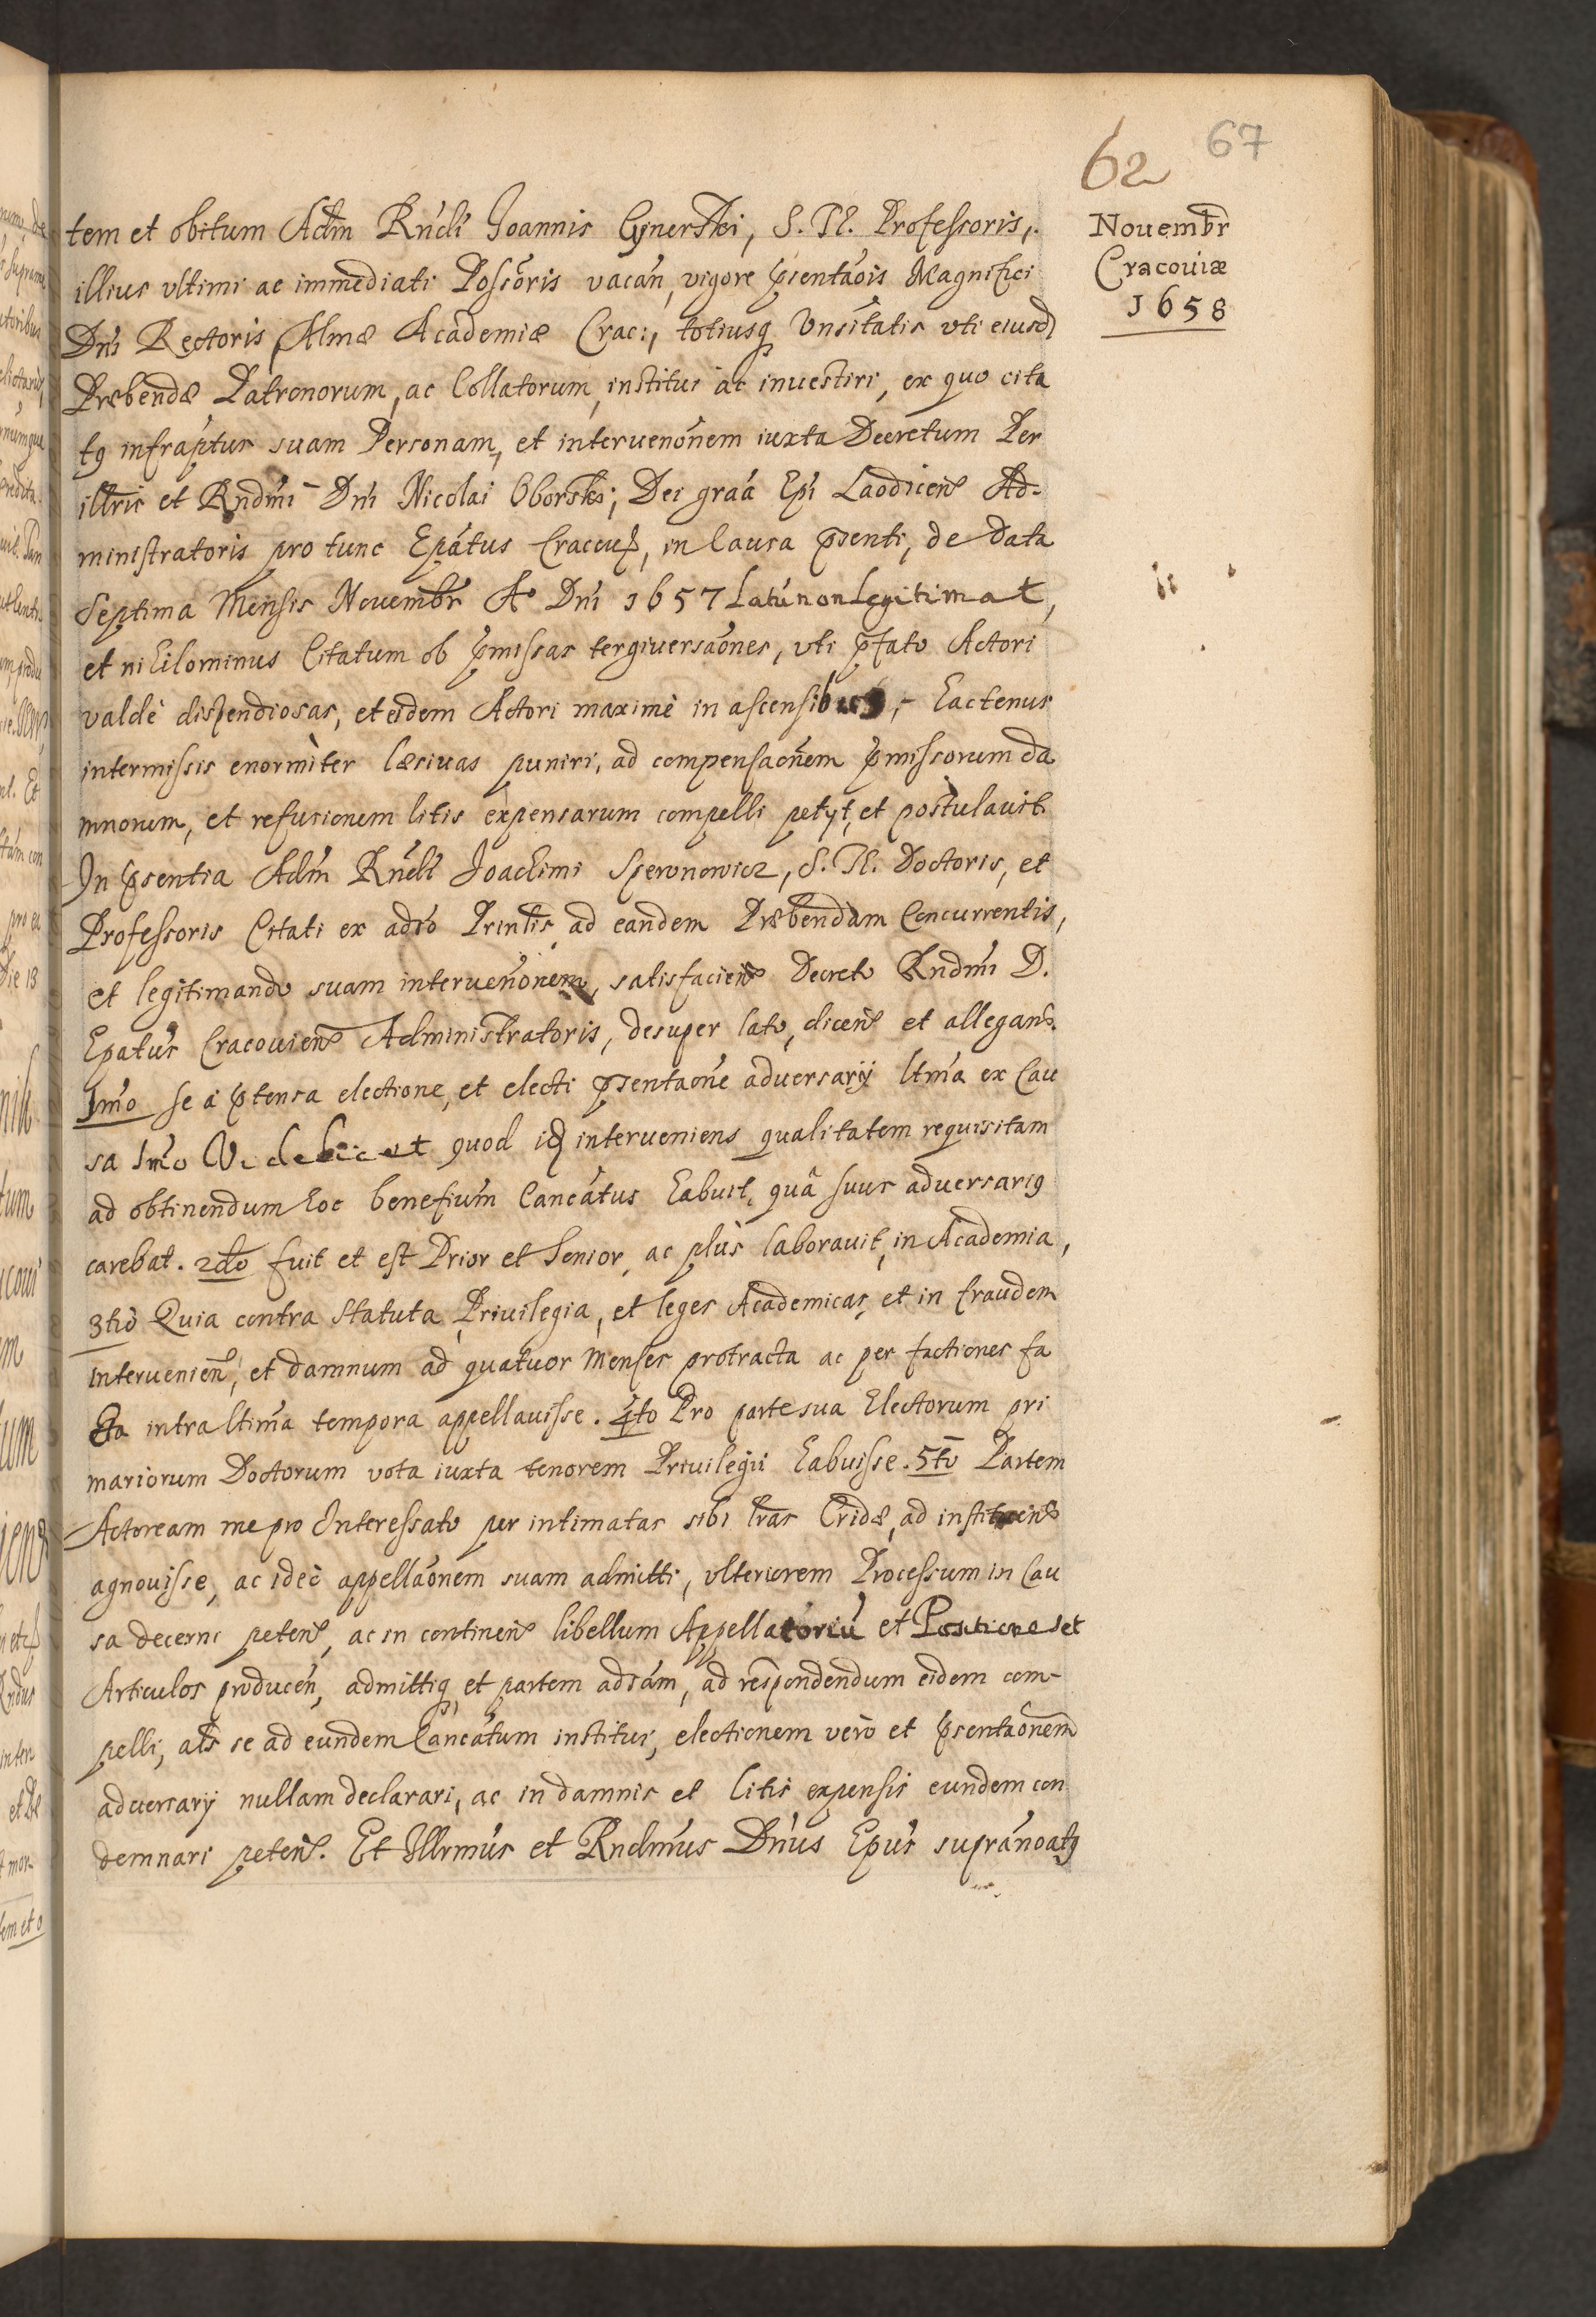 62 67
Nouembr
Cracouiæ
1658
tem et obitum Adm Rndi Joannis Cynerski, S. Th. Professoris,
illius vltimi ac immediati Possoris vacan, vigore psentaois Magnifici
Dni Rectoris Almæ Academiæ Crac:, totiusq Vnsitatis vti eiusd
Præbendæ Patronorum, ac Collatorum, institui ac inuestiri, ex quo cita
tq infraptus suam Personam, et interuenonem iuxta Decretum Per
illris et Rndmi Dni Nicolai Oborski, Dei graa Epi Laodicen Ad-
ministratoris pro tunc Epatus Cracou, in Causa psenti, de data
Septima Mensis Nouembr Ao Dni 1657 Latu non Legitimat,
et nihilominus Citatum ob pmissas tergiuersaones, vti pfato Actori
valdè dispendiosas, et eidem Actori maximè in ascensibus, hactenus
intermissis enormiter læsiuas puniri, ad compensaonem pmissorum da
mnorum, et refusionem litis expensarum compelli petyt, et postulauit.
In psentia Adm Rndi Joachimi Speronowicz, S. Th. Doctoris, et
Professoris Citati ex adso Printis, ad eandem Præbendam Concurrentis,
et legitimando suam interuenonem, satisfacien Decreto Rndmi D.
Epatus Cracouien Administratoris, desuper lato, dicen et allegan.
Imo se à ptensa electione, et electi psentaone aduersarij ltma ex Cau
sa Imo Videlicet quod id interueniens qualitatem requisitam
ad obtinendum hoc benefium Cancatus habuit, quâ suus aduersariq
carebat. 2do fuit et est Prior et Senior, ac plus laborauit, in Academia,
3tio Quia contra Statuta Priuilegia, et leges Academicas, et in fraudem
interuenien, et damnum ad quatuor Menses protracta ac per factiones fa
cta intra ltima tempora appellauisse. 4to Pro parte sua Electorum pri
mariorum Doctorum vota iuxta tenorem Priuilegii habuisse. 5to Partem
Actoream me pro Interessato per intimatas sibi lras Cridæ, ad
agnouisse, ac ideo appellaonem suam admitti, vlteriorem Processum in Cau
sa decerni peten, ac in continen libellum Appellatoriu et Positiones et
Articulos producen, admittiq et partem adsam, ad respondendum eidem com-
pelli, als se ad eundem Cancatum institui, electionem verò et psentaonem
aduersarij nullam declarari, ac in damnis et litis expensis eundem con
demnari peten. Et Illrmus et Rndmus Dnus Epus supranoatq